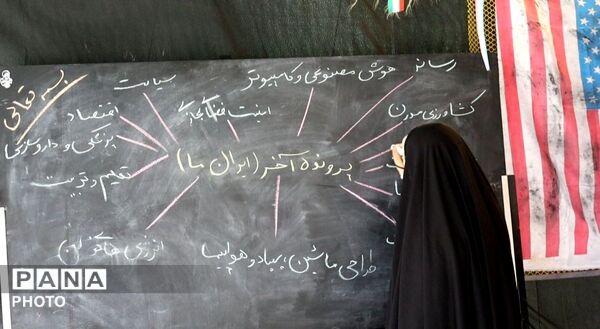 بسم تعالی
رسانه
هوش مصنوعی و کامپیوتر
سیاست
کشاورزی مدرن
اقتصاد
پزشکی و داروسازی
پرونده آخر (ایران ما)
تعلیم و تربیت
انرژی
طراحی ماشین، پهپاد و هواپیما
PANA
PHOTO